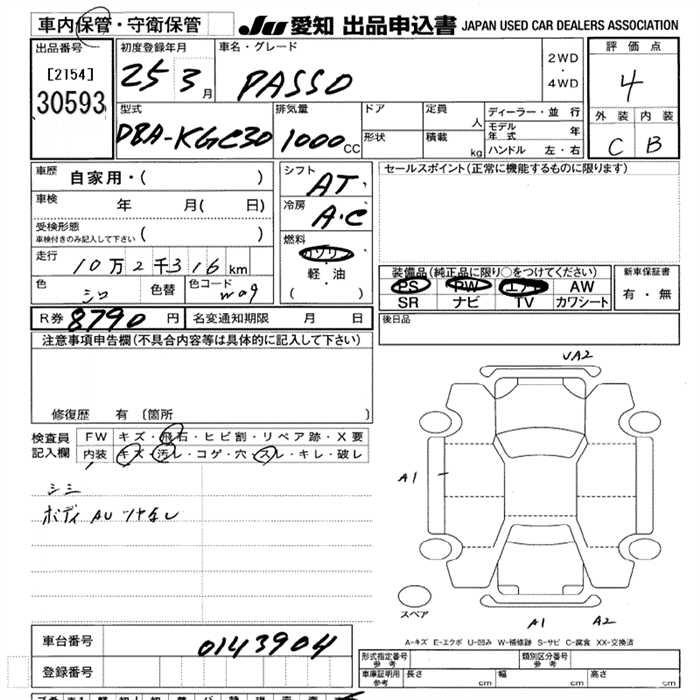 車内保管・守衛保管 JU 愛知 出品申込書 JAPAN USED CAR DEALERS ASSOCIATION
出品番号
[2154]
30593
初度登録年月
25 3月
車名・グレード
PASSO
2WD
・
4WD
評価点
4
外装 内装
C B
型式
DBA-KGC30
排気量
1000 CC
ドア
形状
定員 人
積載 kg
ディーラー・並行
モデル年式 年
ハンドル 左・右
車歴 自家用・( )
車検 年 月( 日)
受検形態
車検付きのみ記入して下さい ( )
走行 10万2千316 km
色 シロ 色替 色コード W09
シフト AT
冷房 A・C
燃料 ガソリン
・
軽・油
( )
セールスポイント(正常に機能するものに限ります)
装備品(純正品に限り○をつけてください)
PS PW エアB AW
SR ナビ TV カワシート
新車保証書
有・無
R券 8790 円 名変通知期限 月 日
後日品
注意事項申告欄(不具合内容等は具体的に記入して下さい)
修復歴 有 〔箇所 〕
検査員記入欄
FW キズ・飛石・ヒビ割・リペア跡・X要
内装 キズ・汚レ・コゲ・穴・スレ・キレ・破レ
シミ
ボディ AU ツヤなし
UA2
A1
スペア
A1 A2
A-キズ E-エクボ U-凹み W-補修跡 S-サビ C-腐食 XX-交換済
車台番号 0143904
登録番号
形式指定番号 参考
類別区分番号 参考
車庫証明用 参考 長さ cm 幅 cm 高さ cm